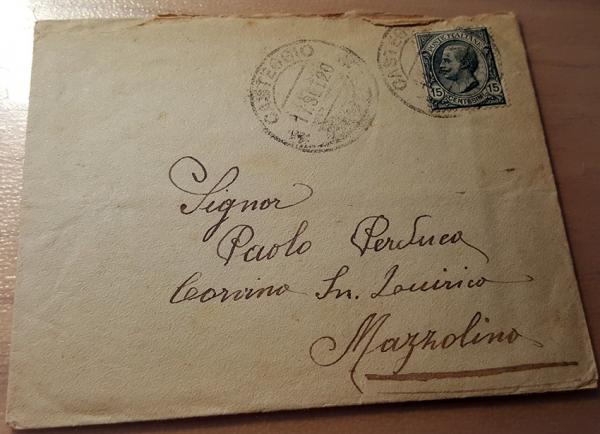 CASTEGGIO
1. SET. 20
CASTEG
POSTE ITALIANE
15 CENTESIMI 15
Signor
Paolo Perduca
Corvino Sn. Quirico
Mazzolino